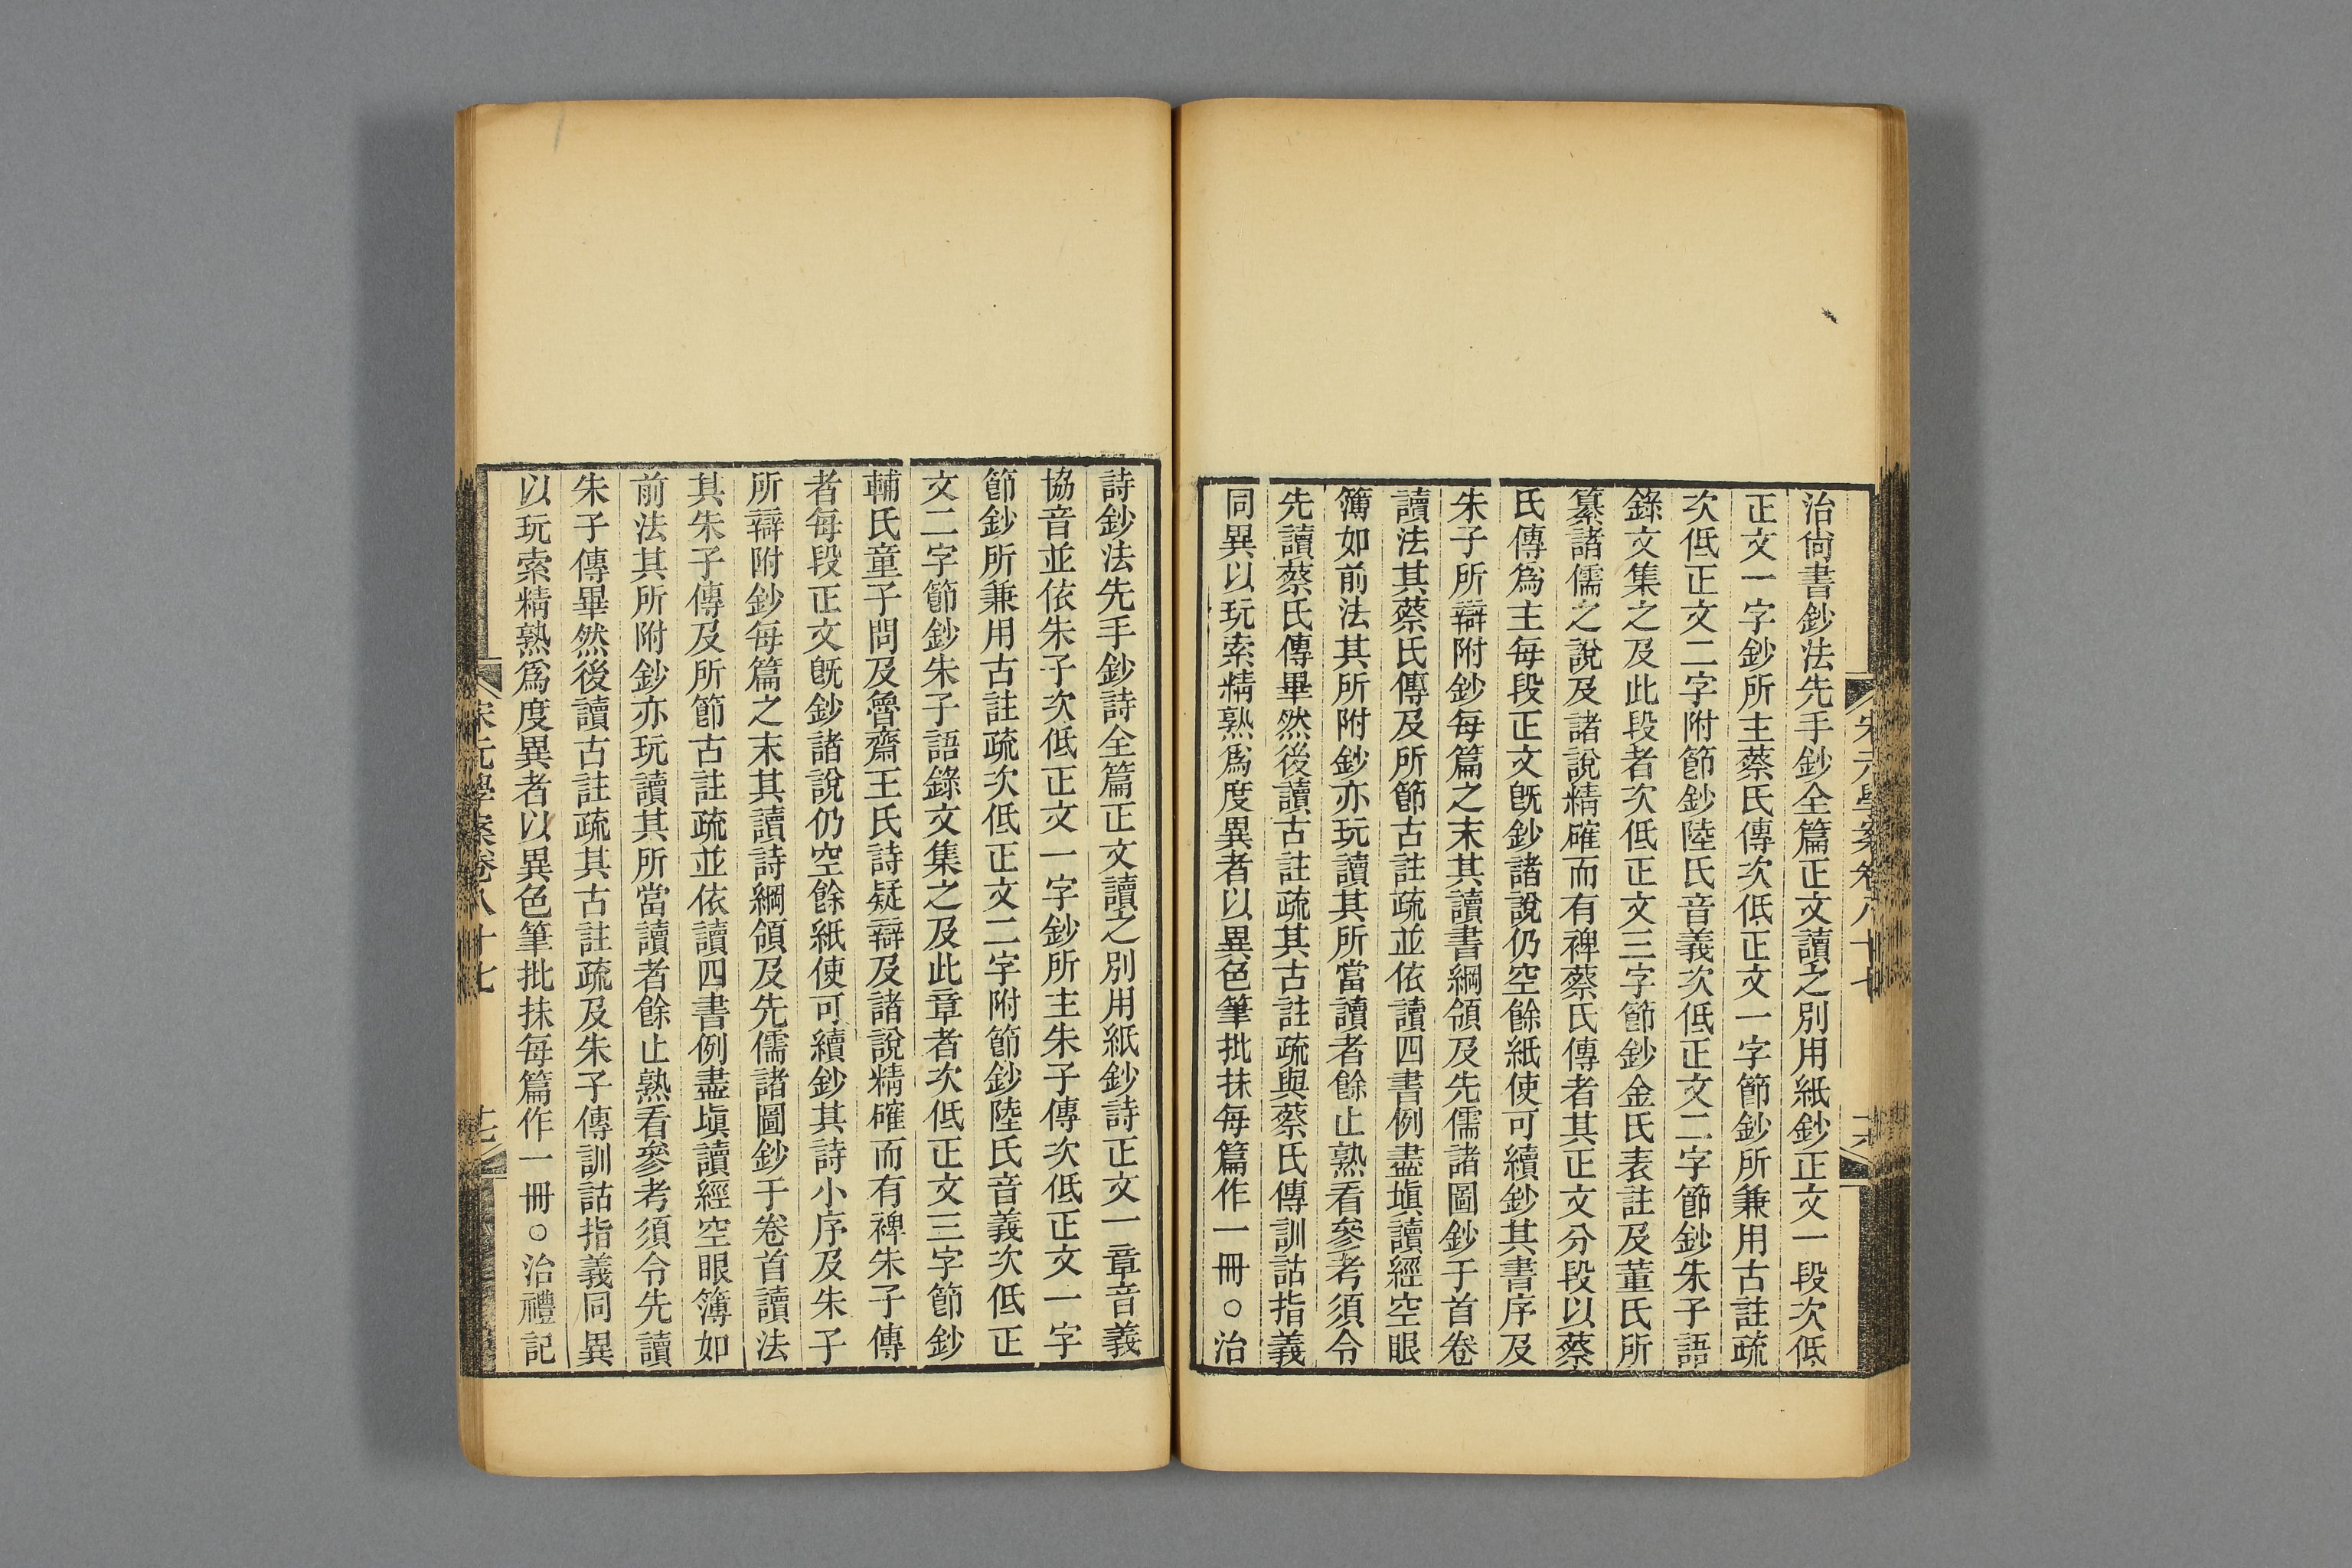 治尙書鈔法先手鈔全篇正文讀之別用紙鈔正文一段次低
正文一字鈔所主蔡氏傳次低正文一字節鈔所兼用古註疏
次低正文二字附節鈔陸氏音義次低正文二字節鈔朱子語
錄文集之及此段者次低正文三字節鈔金氏表註及董氏所
纂諸儒之說及諸說精確而有裨蔡氏傳者其正文分段以蔡
氏傳爲主每段正文旣鈔諸說仍空餘紙使可續鈔其書序及
朱子所辯附鈔每篇之末其讀書綱領及先儒諸圖鈔于首卷
讀法其蔡氏傳及所節古註疏並依讀四書例盡塡讀經空眼
簿如前法其所附鈔亦玩讀其所當讀者餘止熟看參考須令
先讀蔡氏傳畢然後讀古註疏其古註疏與蔡氏傳訓詁指義
同異以玩索精熟爲度異者以異色筆批抹每篇作一冊○治
詩鈔法先手鈔詩全篇正文讀之別用紙鈔詩正文一章音義
協音並依朱子次低正文一字鈔所主朱子傳次低正文一字
節鈔所兼用古註疏次低正文二字附節鈔陸氏音義次低正
文二字節鈔朱子語錄文集之及此章者次低正文三字節鈔
輔氏童子問及魯齋王氏詩疑辯及諸說精確而有裨朱子傳
者每段正文旣鈔諸說仍空餘紙使可續鈔其詩小序及朱子
所辯附鈔每篇之末其讀詩綱領及先儒諸圖鈔于卷首讀法
其朱子傳及所節古註疏並依讀四書例盡塡讀經空眼簿如
前法其所附鈔亦玩讀其所當讀者餘止熟看參考須令先讀
朱子傳畢然後讀古註疏其古註疏及朱子傳訓詁指義同異
以玩索精熟爲度異者以異色筆批抹每篇作一冊○治禮記
宋元學案卷八十七